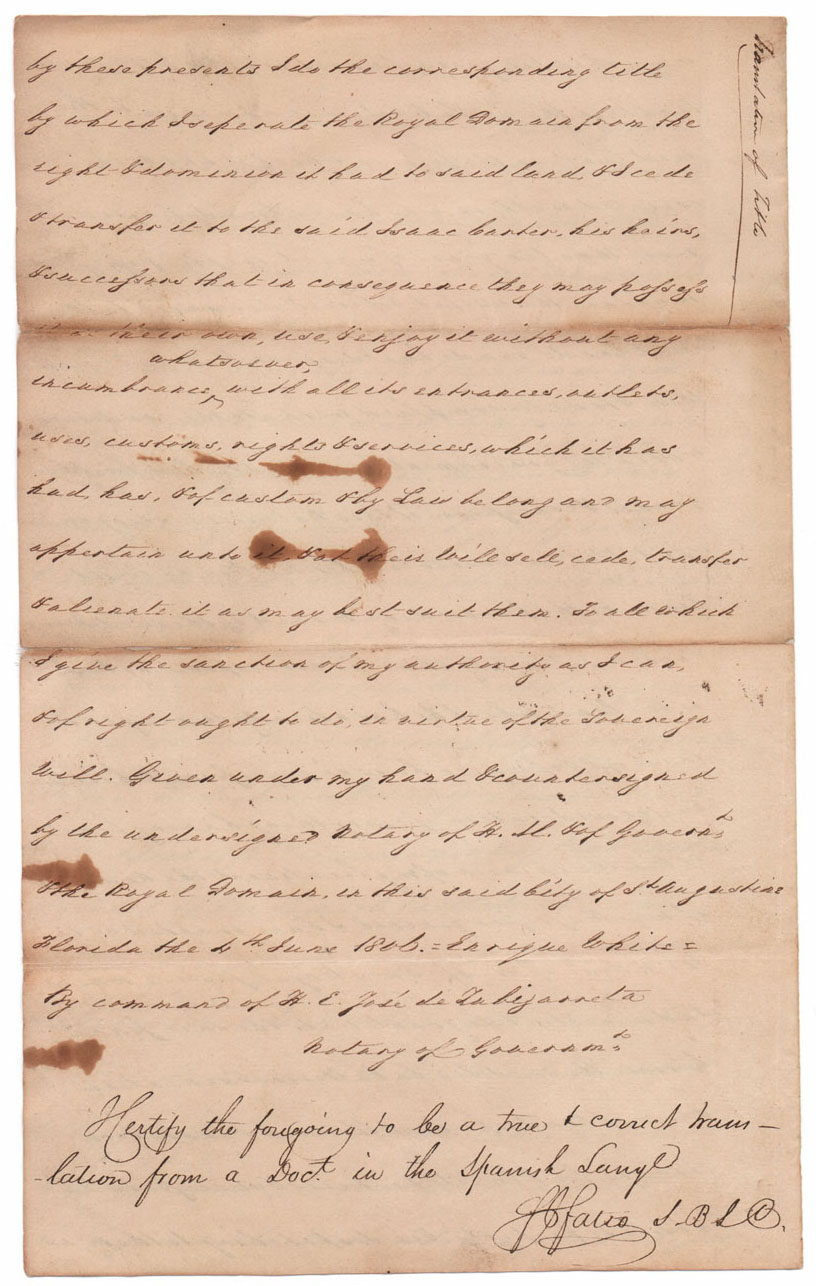 Translation of Title
by these presents I do the corresponding title
by which I seperate the Royal Domain from the
right & dominion it had to said land, & I cede
& transfer it to the said Isaac Carter, his heirs,
& successors that in consequence they may possess
it as their own, use, & enjoy it without any
whatsoever,
incumbrance, with all its entrances, outlets,
uses, customs, rights & services, which it has
had, has, & of custom & by Law belong and may
appertain unto it, & at their Will sell, cede, transfer
& alienate it as may best suit them. To all which
I give the sanction of my authority as I can,
& of right ought to do, in virtue of the Sovereign
Will. Given under my hand & countersigned
by the undersigned Notary of H. M. & of Governt
& the Royal Domain, in this said City of St Augustine
Florida the 4th June 1806. = Enrique White =
By command of H. E. José de Zubizarreta
Notary of Governmt
I Certify the foregoing to be a true & correct trans-
-lation from a Doct. in the Spanish Lange
S. B. L. C.